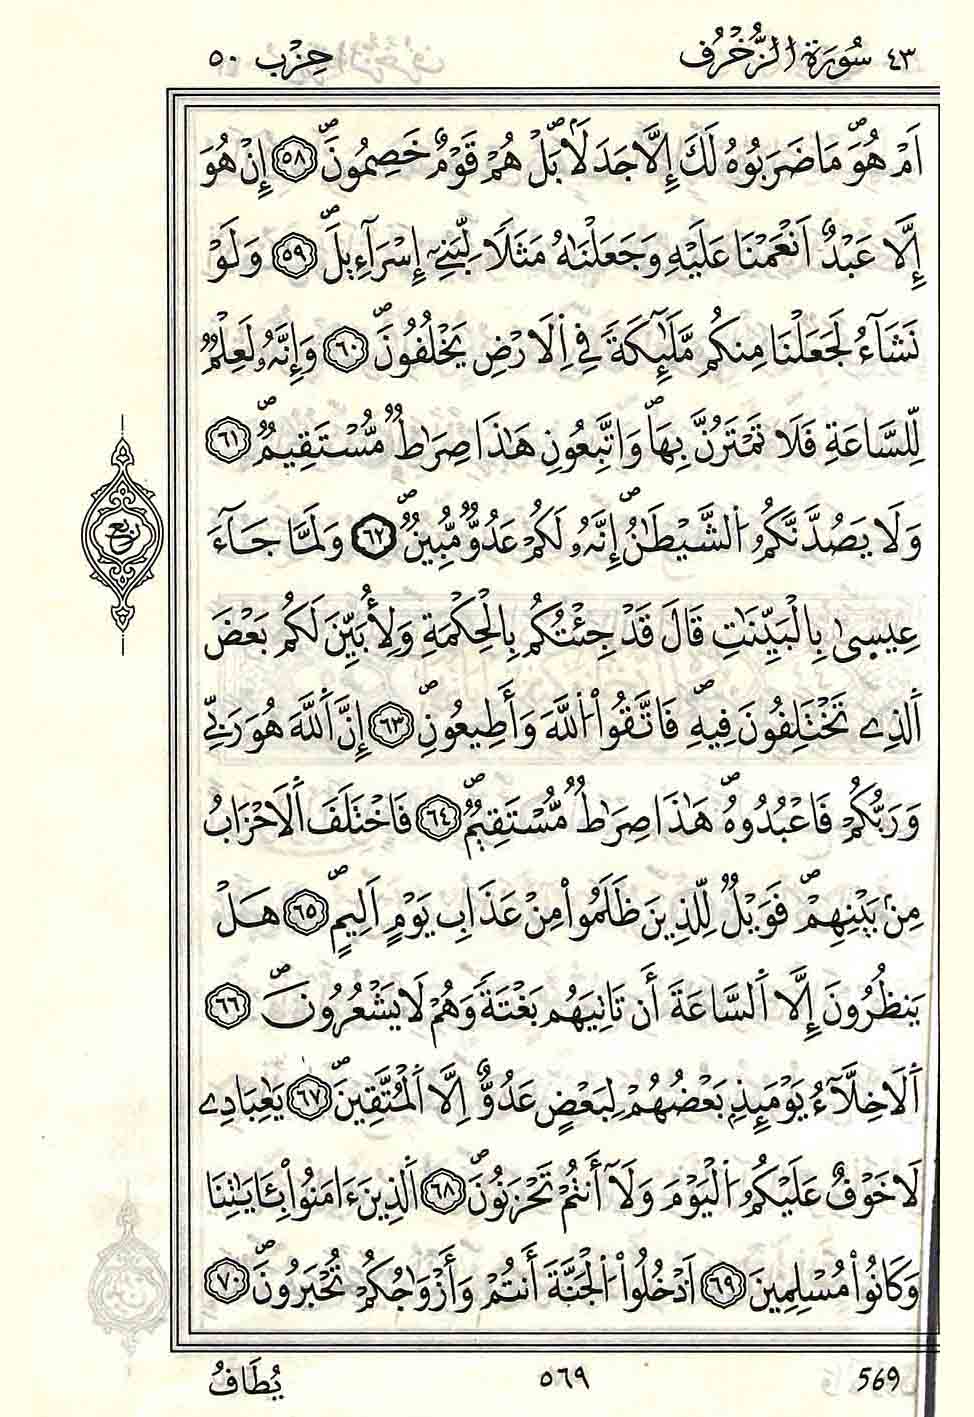 ٤٣ سُورَةُ الزُّخْرُف حِزْب ٥٠
اَمْ هُوَۖ مَا ضَرَبُوهُ لَكَ إِلَّا جَدَلَاۢۖ بَلْ هُمْ قَوْمٌ خَصِمُونَۖ ٥٨ إِنْ هُوَ
إِلَّا عَبْدٌ اَنْعَمْنَا عَلَيْهِ وَجَعَلْنَٰهُ مَثَلًا لِّبَنِےٓ إِسْرَآءِيلَۖ ٥٩ وَلَوْ
نَشَآءُ لَجَعَلْنَا مِنكُم مَّلَٰٓئِكَةً فِے اِلَارْضِ يَخْلُفُونَۖ ٦٠ وَإِنَّهُۥ لَعِلْمٌ
لِّلسَّاعَةِ فَلَا تَمْتَرُنَّ بِهَاۖ وَاتَّبِعُونِ هَٰذَا صِرَٰطٌ مُّسْتَقِيمٌۖ ٦١
وَلَا يَصُدَّنَّكُمُ اُلشَّيْطَٰنُۖ إِنَّهُۥ لَكُمْ عَدُوٌّ مُّبِينٌۖ ٦٢ وَلَمَّا جَآءَ
عِيسىٰ بِالْبَيِّنَٰتِ قَالَ قَدْ جِئْتُكُم بِالْحِكْمَةِ وَلِأُبَيِّنَ لَكُم بَعْضَ
اَلذِے تَخْتَلِفُونَ فِيهِۖ فَاتَّقُواْ اُللَّهَ وَأَطِيعُونِۖ ٦٣ إِنَّ اَللَّهَ هُوَ رَبِّے
وَرَبُّكُمْ فَاعْبُدُوهُۖ هَٰذَا صِرَٰطٌ مُّسْتَقِيمٌۖ ٦٤ فَاخْتَلَفَ اَلَاحْزَابُ
مِنۢ بَيْنِهِمْۖ فَوَيْلٌ لِّلذِينَ ظَلَمُواْ مِنْ عَذَابِ يَوْمٍ اَلِيمٍۖ ٦٥ هَلْ
يَنظُرُونَ إِلَّا اَلسَّاعَةَ أَن تَاتِيَهُم بَغْتَةً وَهُمْ لَا يَشْعُرُونَۖ ٦٦
اَلَاخِلَّآءُ يَوْمَئِذِۢ بَعْضُهُمْ لِبَعْضٍ عَدُوٌّ اِلَّا اَلْمُتَّقِينَۖ ٦٧ يَٰعِبَادِے
لَا خَوْفٌ عَلَيْكُمُ اُلْيَوْمَ وَلَآ أَنتُمْ تَحْزَنُونَۖ ٦٨ اَلذِينَ ءَامَنُواْ بِـَٔايَٰتِنَا
وَكَانُواْ مُسْلِمِينَ ٦٩ اَدْخُلُواْ اُلْجَنَّةَ أَنتُمْ وَأَزْوَٰجُكُمْ تُحْبَرُونَۖ ٧٠
ربع
يُطَافُ ٥٦٩ 569